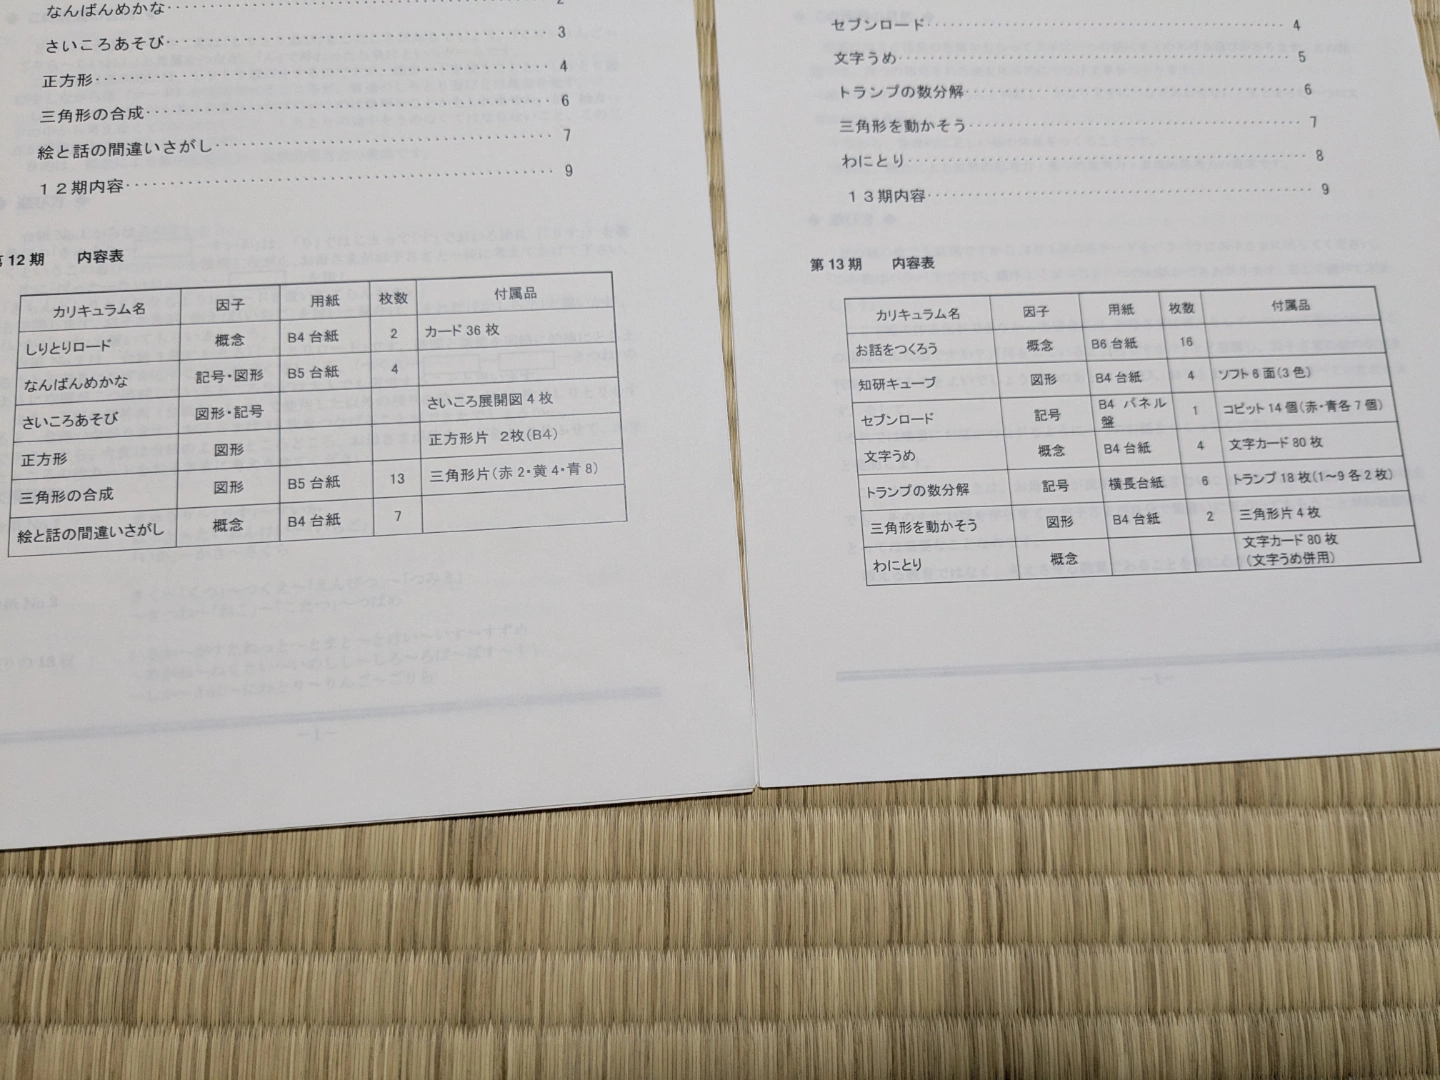 なんばんめかな
さいころあそび 3
正方形 4
三角形の合成 6
絵と話の間違いさがし 7
12期内容 9
第12期 内容表
カリキュラム名 因子 用紙 枚数 付属品
しりとりロード 概念 B4台紙 2 カード36枚
なんばんめかな 記号・図形 B5台紙 4
さいころあそび 図形・記号 さいころ展開図4枚
正方形 図形 正方形片 2枚(B4)
三角形の合成 図形 B5台紙 13 三角形片(赤2・黄4・青8)
絵と話の間違いさがし 概念 B4台紙 7
セブンロード 4
文字うめ 5
トランプの数分解 6
三角形を動かそう 7
わにとり 8
13期内容 9
第13期 内容表
カリキュラム名 因子 用紙 枚数 付属品
お話をつくろう 概念 B6台紙 16
知研キューブ 図形 B4台紙 4 ソフト6面(3色)
セブンロード 記号 B4 パネル盤 1 コピット14個(赤・青各7個)
文字うめ 概念 B4台紙 4 文字カード80枚
トランプの数分解 記号 横長台紙 6 トランプ18枚(1~9各2枚)
三角形を動かそう 図形 B4台紙 2 三角形片4枚
わにとり 概念 文字カード80枚
(文字うめ併用)